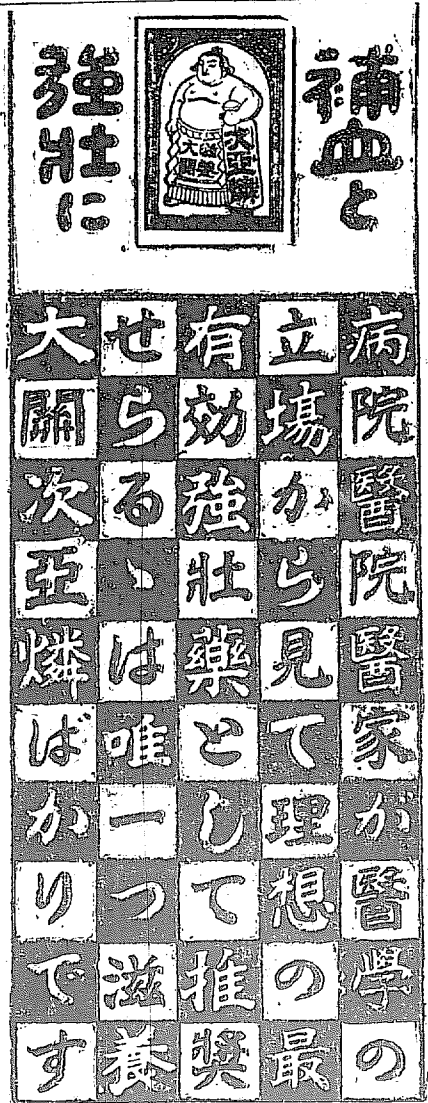 補血と
強壯に
次亞燐
滋養
大關
病院醫院醫家が醫學の
立場から見て理想の最
有効強壯藥として推奬
せらるゝは唯一つ滋養
大關次亞燐ばかりです